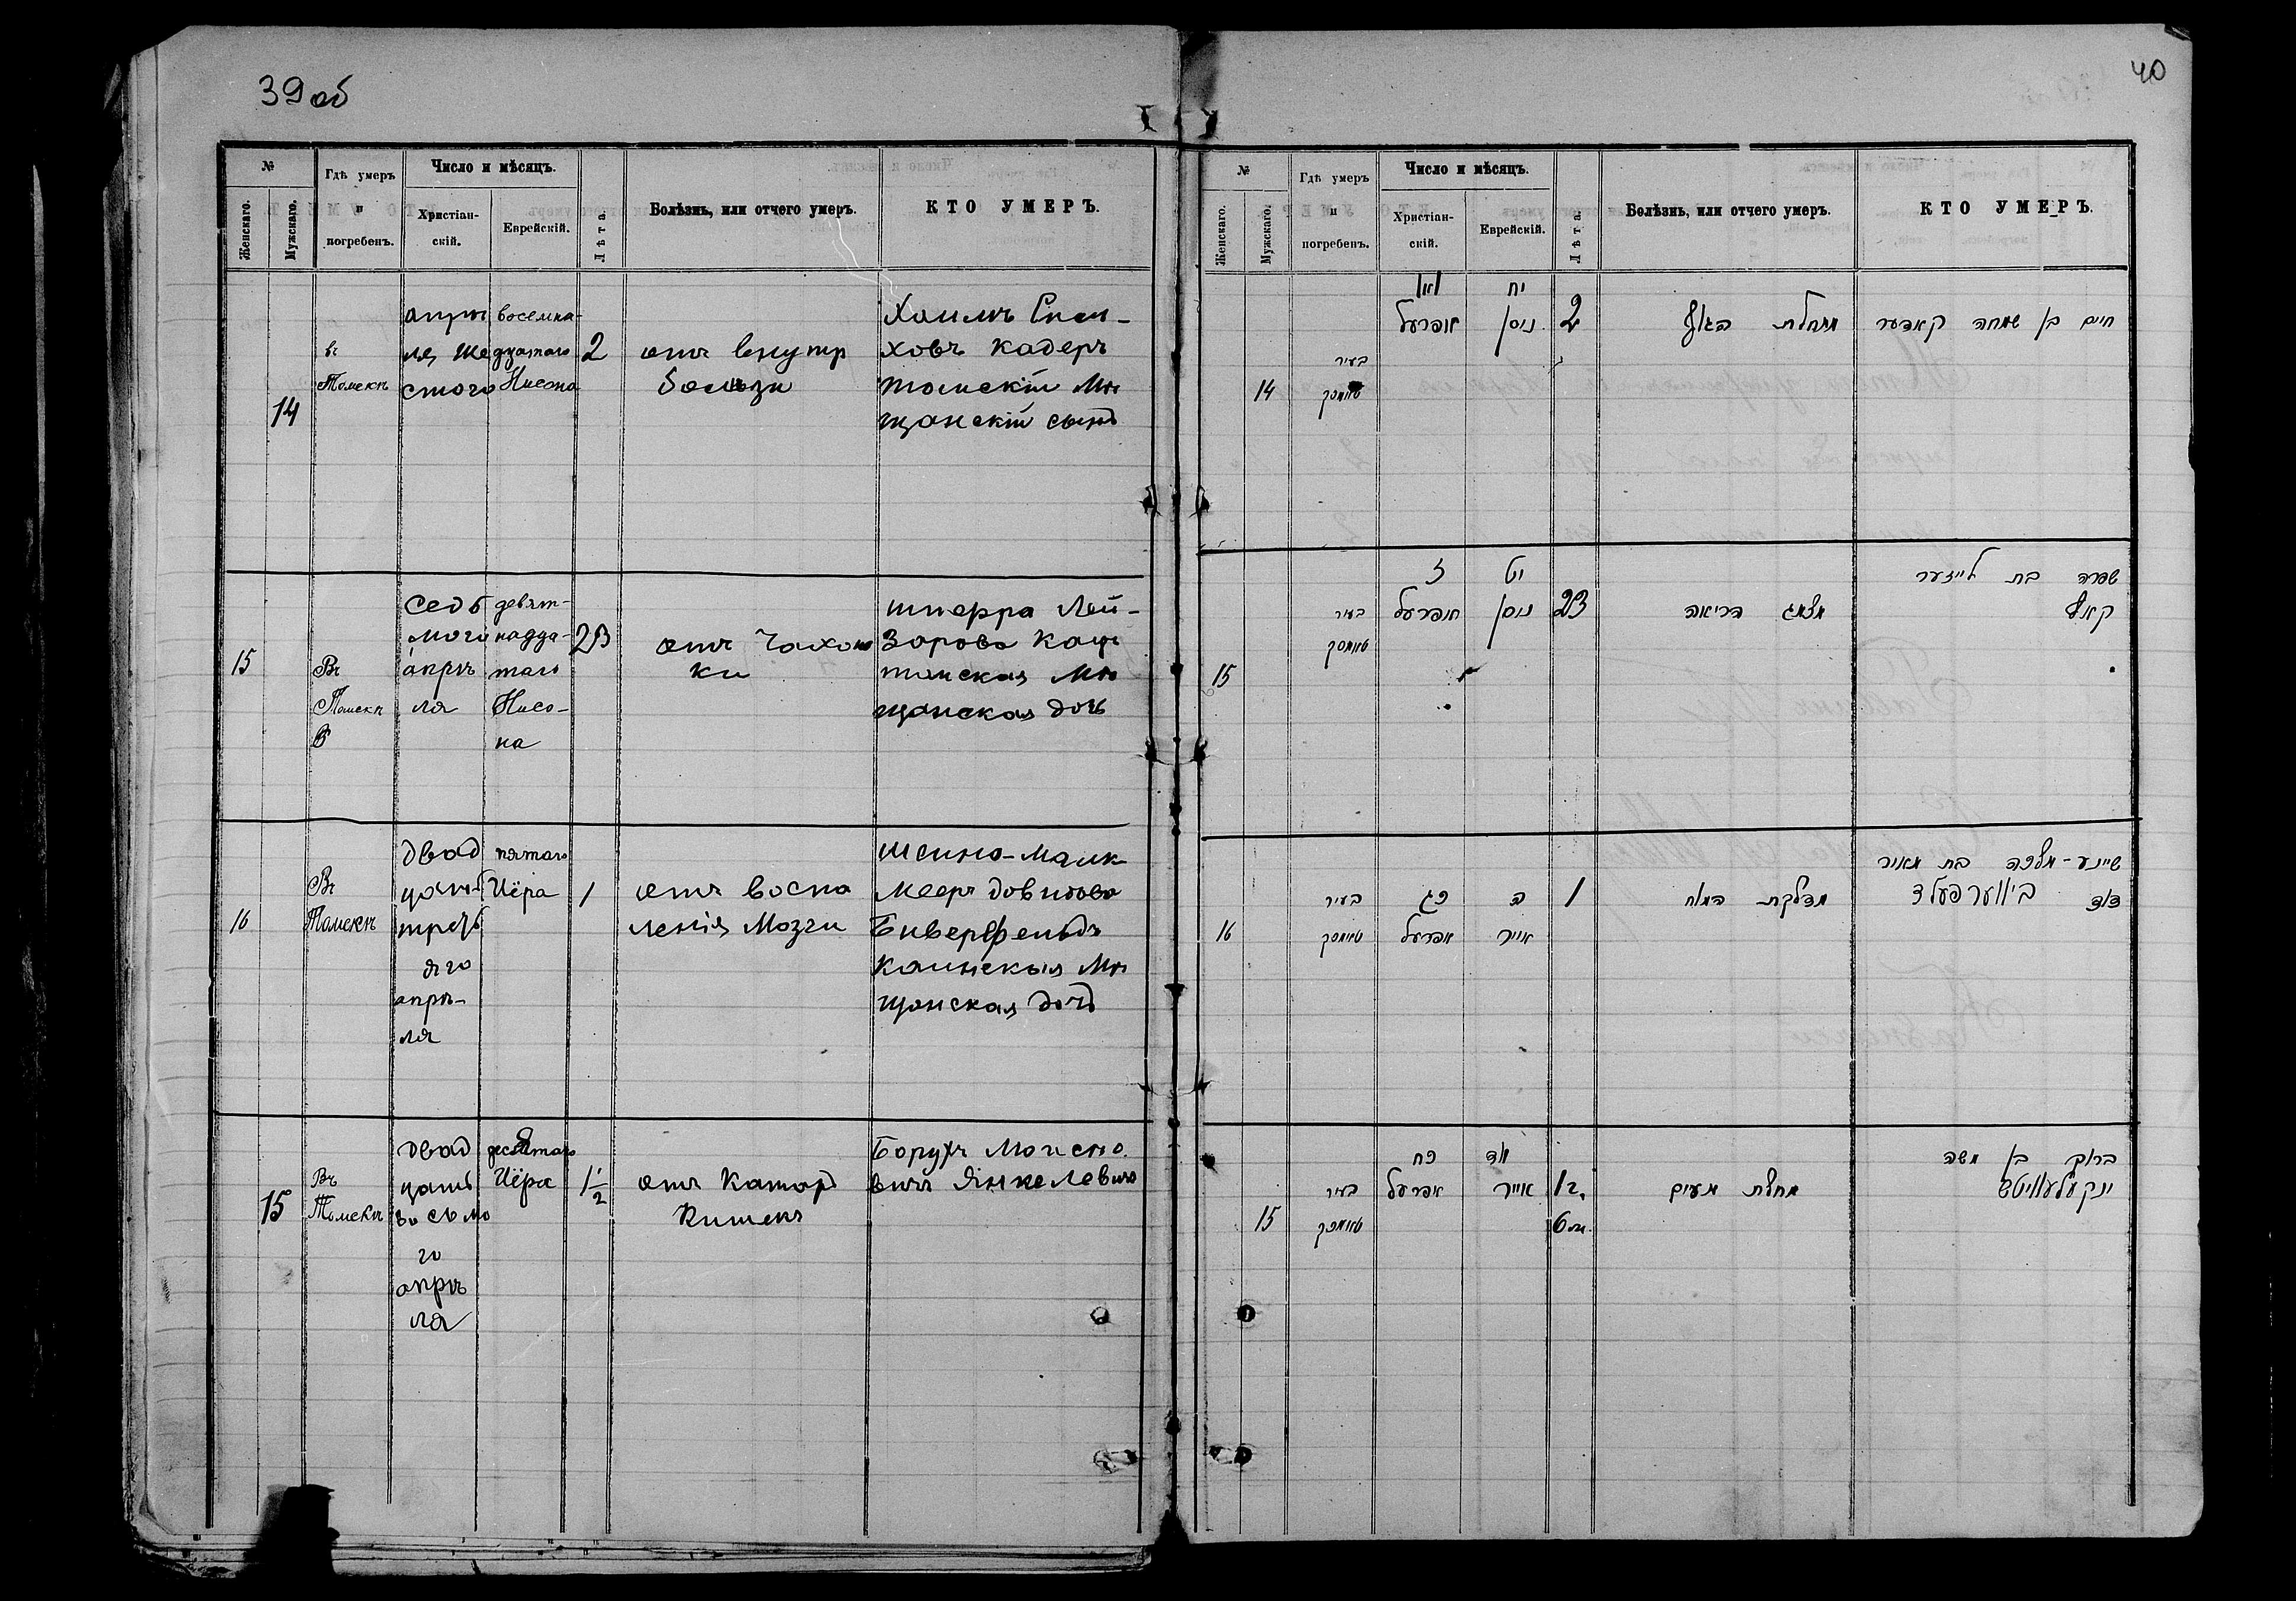 39 об
№
Женскаго.
Мужскаго.
Гдѣ умеръ
и
погребенъ.
Число и мѣсяцъ.
Христіан-
скій.
Еврейскій.
Лѣта.
Болѣзнь, или отчего умеръ.
КТО УМЕРЪ.
14
въ
Томскѣ
апрѣ
ля ше
стого
восемна-
дцатаго
Нисона
2
отъ внутр
болѣзи
Хаимъ Сим-
ховъ Кадеръ
томскій мѣ
щанскій сынъ
15
Въ
Томскѣ
Седь
мого
апрѣ
ля
девят-
надца-
таго
Нисо-
на
23
отъ Чахот
ки
Шперра Лей-
Зорова Кацъ
томская мѣ
щанская дочь
16
Въ
Томскѣ
двад
цать
треть
яго
апрѣ-
ля
пятаго
Иёра
1
отъ воспа
ленія Мозги
Шейно-Малк
Меер Довидова
Биверфельдъ
Каинскыя мѣ
щанская дочь
15
Въ
Томскѣ
двад
цать
восьмо
го
апрѣ
ля
десятаго
Иёра
1 1/2
отъ Катар
Кишекъ
Борухъ Моисео
вичъ Янкелевичъ
40
№
Женскаго.
Мужскаго.
Гдѣ умеръ
и
погребенъ.
Число и мѣсяцъ.
Христіан-
скій.
Еврейскій.
Лѣта.
Болѣзнь, или отчего умеръ.
КТО УМЕРЪ.
14
בעיר
טאמסק
אפרעל
יח
ניסן
2
מחלת הגוף
חיים בן שמחה קאדער
15
בעיר
טאמסק
ז
אפרעל
יט
ניסן
23
הריאה
שפרה בת לייזער
קאץ
16
בעיר
טאמסק
כג
אפרעל
ה
אייר
1
מדלקת המוח
שיינע-מלכה בת מאיר
דוד ביווערפעלד
15
בעיר
טאמסק
כח
אפרעל
אייר
1 г.
6 м.
מחלת מעים
ברוך בן משה
ינקעלעוויטש